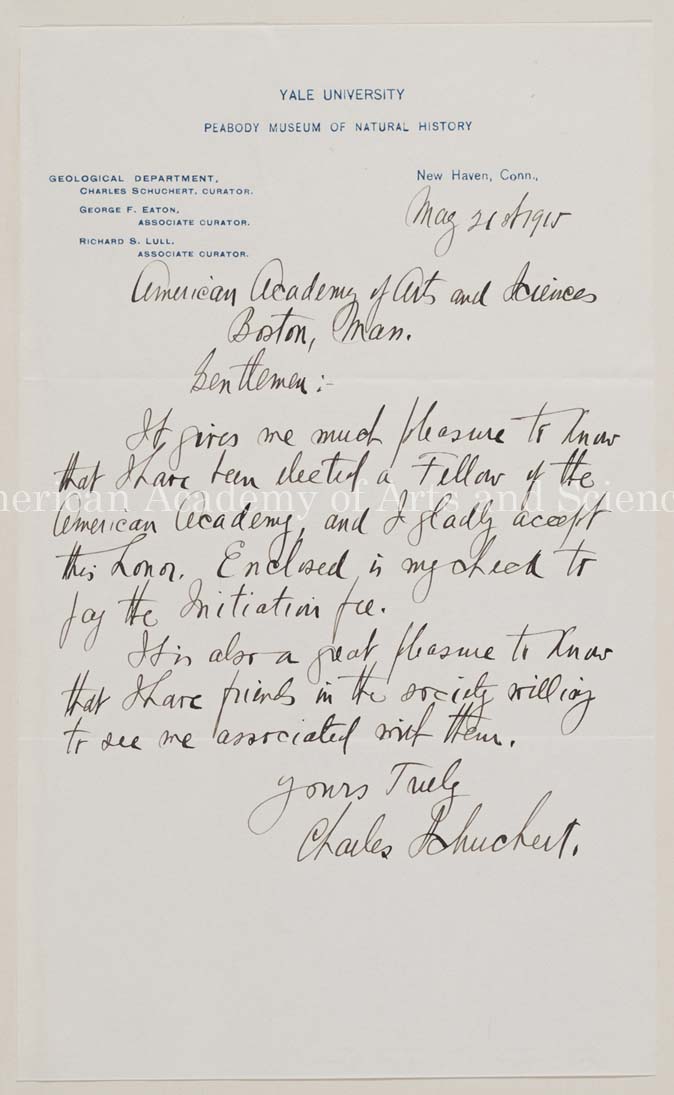 YALE UNIVERSITY
PEABODY MUSEUM OF NATURAL HISTORY
GEOLOGICAL DEPARTMENT,
CHARLES SCHUCHERT, CURATOR.
GEORGE F. EATON,
ASSOCIATE CURATOR.
RICHARD S. LULL,
ASSOCIATE CURATOR.
New Haven, Conn.,
May 21st 1910
American Academy of Arts and Sciences
Boston, Mass.
Gentlemen:-
It gives me much pleasure to know
that I have been elected a Fellow of the
American Academy, and I gladly accept
this honor. Enclosed is my check to
pay the Initiation fee.
It is also a great pleasure to know
that I have friends in the society willing
to see me associated with them.
Yours Truly
Charles Schuchert.
American Academy of Arts and Scienc